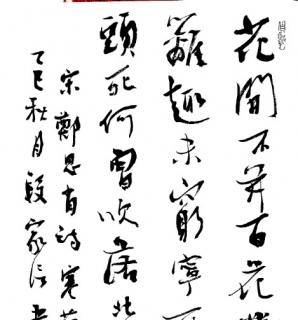 花開不并百花
籬趣未窮寧可
頭死何曾吹落北
宋鄭思肖詩寒菊
乙巳秋月段家